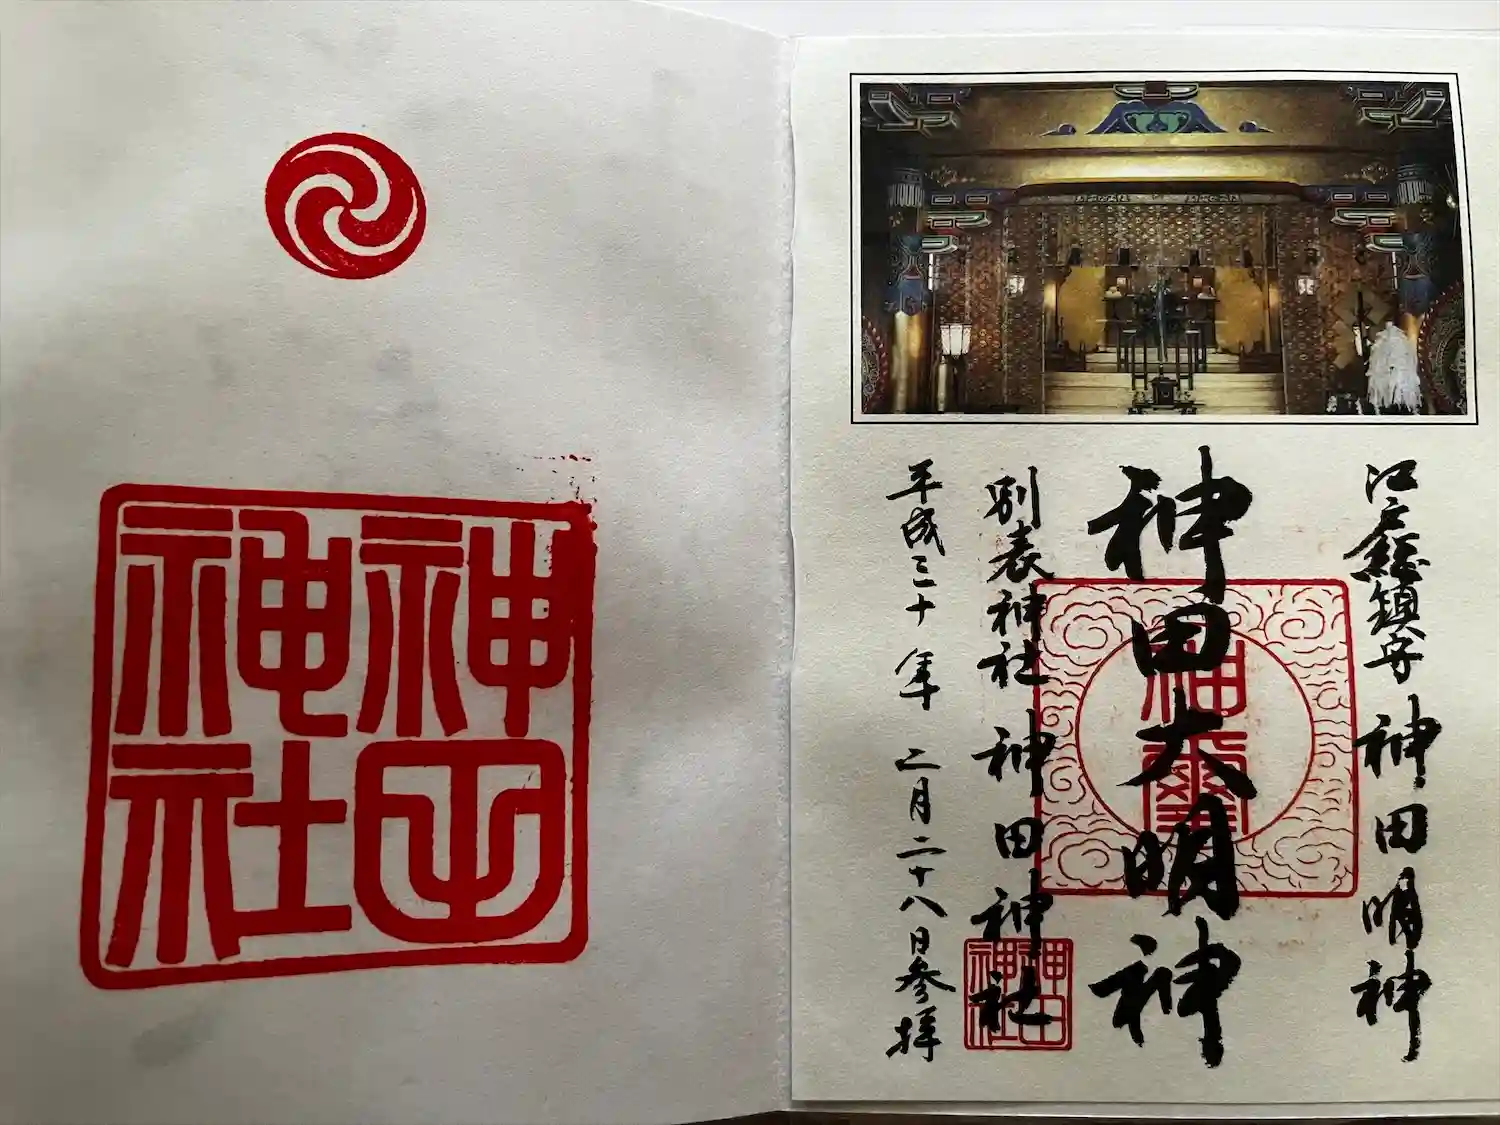 江戸総鎮守 神田明神
神田大明神
神璽
別表神社 神田神社
神田神社
平成三十年 二月二十八日参拝
神田神社